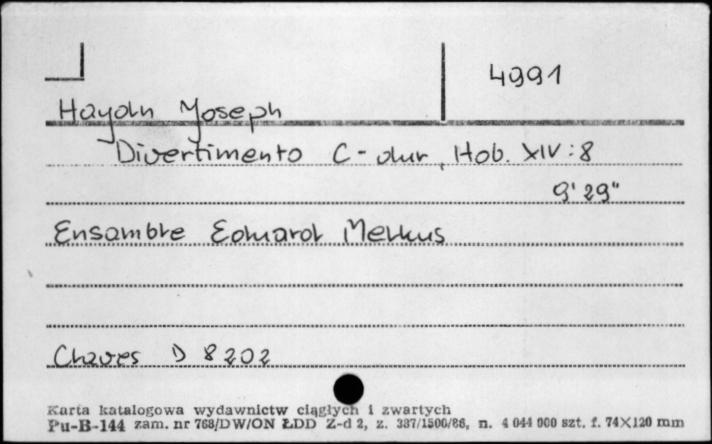 4991
Haydn Joseph
Divertimento C-dur, Hob. XIV:8
9'29"
Ensamble Eduard Melkus
Claves D 8202
Karta katalogowa wydawnictw ciągłych i zwartych
Pu-B-144 zam. nr 768/DW/ON ŁDD Z-d 2, z. 337/1500/86, n. 4 044 000 szt. f. 74×120 mm